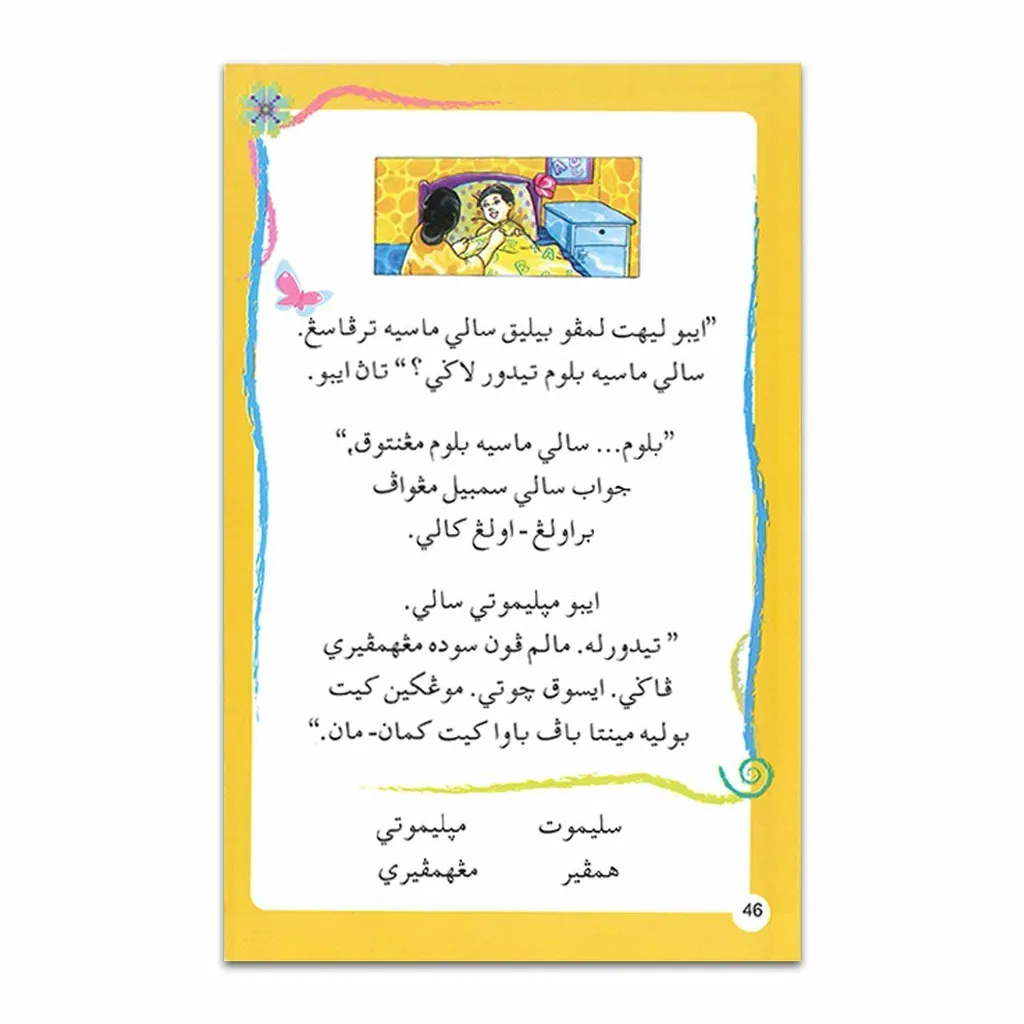 ABC
”ايبو ليهت لمڤو بيليق سالي ماسيه ترڤاسڠ.
سالي ماسيه بلوم تيدور لاݢي؟“ تاڽ ايبو.
”بلوم... سالي ماسيه بلوم مڠنتوق,“
جواب سالي سمبيل مڠواڤ
براولڠ - اولڠ كالي.
ايبو مڽليموتي سالي.
”تيدورله. مالم ڤون سوده مڠهمڤيري
ڤاݢي. ايسوق چوتي. موڠكين كيت
بوليه مينتا باڤ باوا كيت كمان- مان.“
سليموت مڽليموتي
همڤير مڠهمڤيري
46